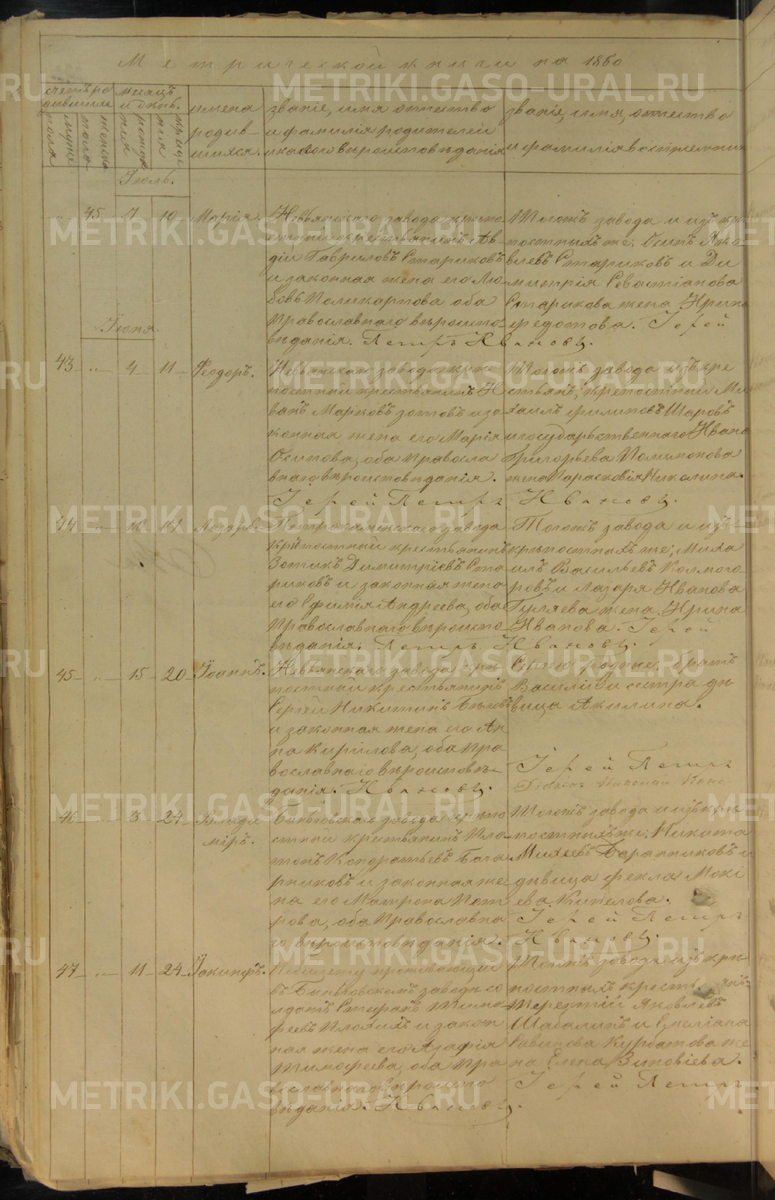 Метрической книги на 1860
Счетъ ро
дившихся
мужеска
пола
женска
Месяцъ
и день
рожде
нія
креще
нія
имена
родив-
шихся.
званіе, имя отчество
и фамилія родителей
и какого вѣроисповѣданія
званіе, имя, отчество
и фамилія воспріемник
Іюль.
45 7 10 Марія.
Невьянскаго завода крѣпо
стной крестьянинъ Ав
дій Гавриловъ Стариковъ
и законная жена его Лю
бовь Поликарпова оба
Православнаго вѣроиспо
вѣданія.
Тогожъ завода и изъ крѣ
постныхъ же, Осипъ Яко
влевъ Стариковъ и Ди
митрія Севастіанова
Старикова жена Ирина
Федотова. Іерей
Петръ Ивановъ.
Іюня
43 4 11 Феодоръ.
Невьянскаго завода крѣ
постной крестьянинъ И
ванъ Марковъ Зотовъ и за
конная жена его Марія
Осипова, оба Правосла
внаго вѣроисповѣданія.
Тогожъ завода изъ кре
стьянъ, крепостной Ми
хаилъ Филиповъ Шаровъ
и государственнаго Ивана
Григорьева
жена Парасковія Никитина.
Іерей Петръ Ивановъ.
44 Лазарь
Петрокаменскаго завода
крѣпостный крестьянинъ
Зотикъ Димитріевъ Ста
риковъ и законная жена
его Ефимія Андреева, оба
Православнаго вѣроиспо
вѣданія.
Тогожъ завода и изъ
крѣпостныхъ же; Миха
илъ Васильевъ Колмого
ровъ и Лазаря Иванова
Гуляева жена, Ирина
Иванова. Іерей
Петръ Ивановъ.
45 15 20 Іоаннъ.
Невьянскаго завода крѣ
постный крестьянинъ
Сергей Никитинъ
и законная жена его Ан
на Кирилова, оба Пра
вославнаго вѣроисповѣ
данія.
родные, братъ
Василій и сестра дѣ
вица Акилина.
Іерей Петръ
Ивановъ.
46 8 24 Влади
міръ.
Быньговскаго завода крѣпо
стный крестьянинъ Пла
тонъ Кондратьевъ
и законная же
на его Матрона Пет
рова, оба Православна
го вѣроисповѣданія.
Тогожъ завода и изъ крѣ
постныхъ же, Никита
Михеевъ Баранниковъ и
дѣвица Фекла Моки
ева Кипелова.
Іерей Петръ
Ивановъ.
47 11 24 Іакинфъ.
проживающій
въ Быньговскомъ заводѣ со
лдатъ Стефанъ Тимо
феевъ Плохихъ и закон
ная жена его Агафія
Тимофеева, оба Пра
вославнаго вѣроиспо
вѣданія. Ивановъ.
Тогожъ завода изъ крѣ
постныхъ крестьянъ
Терентій Яковлевъ
Шабалинъ и Емеліана
Савинова Курбатова же
на Елена Зиновіева.
Іерей Петръ
METRIKI.GASO-URAL.RU